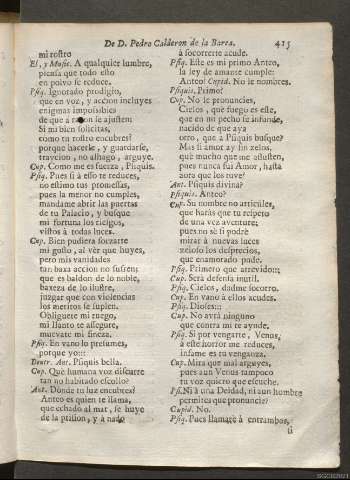 De D. Pedro Calderon de la Barca. 415
mi rostro
El, y Music. A qualquier lumbre,
piensa que todo esto
en polvo se reduce.
Psiq. Ignorado prodigio,
que en voz, y accion incluyes
enigmas impossibles
de que à razon se ajusten:
Si mi bien solicitas,
como tu rostro encubres?
porque hacerle, y guardarse,
traycion, no alhago, arguye.
Cup. Como me es fuerza, Psiquis.
Psiq. Pues si à esso te reduces,
no estimo tus promessas,
pues la menor no cumples,
mandame abrir las puertas
de tu Palacio, y busque
mi fortuna los riesgos,
vistos à todas luces.
Cup. Bien pudiera forzarte
mi gusto, al vèr que huyes,
pero mis vanidades
tan baxa accion no sufren;
que es baldon de lo noble,
baxeza de lo ilustre,
juzgar que con violencias
los meritos se suplen.
Obliguete mi ruego,
mi llanto te assegure,
muevate mi fineza.
Psiq. En vano lo presumes,
porque yo:::
Dentr. Ant. Psiquis bella.
Cup. Què humana voz discurre
tan no habitado escollo?
Ant. Dònde tu luz encubres?
Anteo es quien te llama,
que echado al mar, se huye
de la prision, y à nado
à socorrerte acude.
Psiq. Este es mi primo Anteo,
la ley de amante cumple:
Anteo! Cupid. No le nombres.
Psiquis. Primo!
Cup. No le pronuncies,
Cielos, què fuego es este,
que en mi pecho se infunde,
nacido de que aya
otro, que à Psiquis busque?
Mas si amor ay sin zelos,
què mucho que me assusten,
pues nunca fui Amor, hasta
aora que los tuve?
Ant. Psiquis divina?
Psiquis. Anteo?
Cup. Su nombre no articules,
que haràs que tu respeto
de una vez aventure;
pues no sè si podrè
mirar à nuevas luces
zeloso los desprecios,
que enamorado pude.
Psiq. Primero que atrevido:::
Cup. Serà defensa inutil.
Psiq. Cielos, dadme socorro.
Cup. En vano à ellos acudes.
Psiq. Dioses:::
Cup. No avrà ninguno
que contra mi te ayude.
Psiq. Si por vengarte, Venus,
à este horror me reduces,
infame es tu venganza.
Cup. Mira que mal arguyes,
pues aun Venus tampoco
tu voz quiero que escuche.
Psi. Ni à una Deidad, ni aun hombre
permites que pronuncie?
Cupid. No.
Psiq. Pues llamarè à entrambos,
si